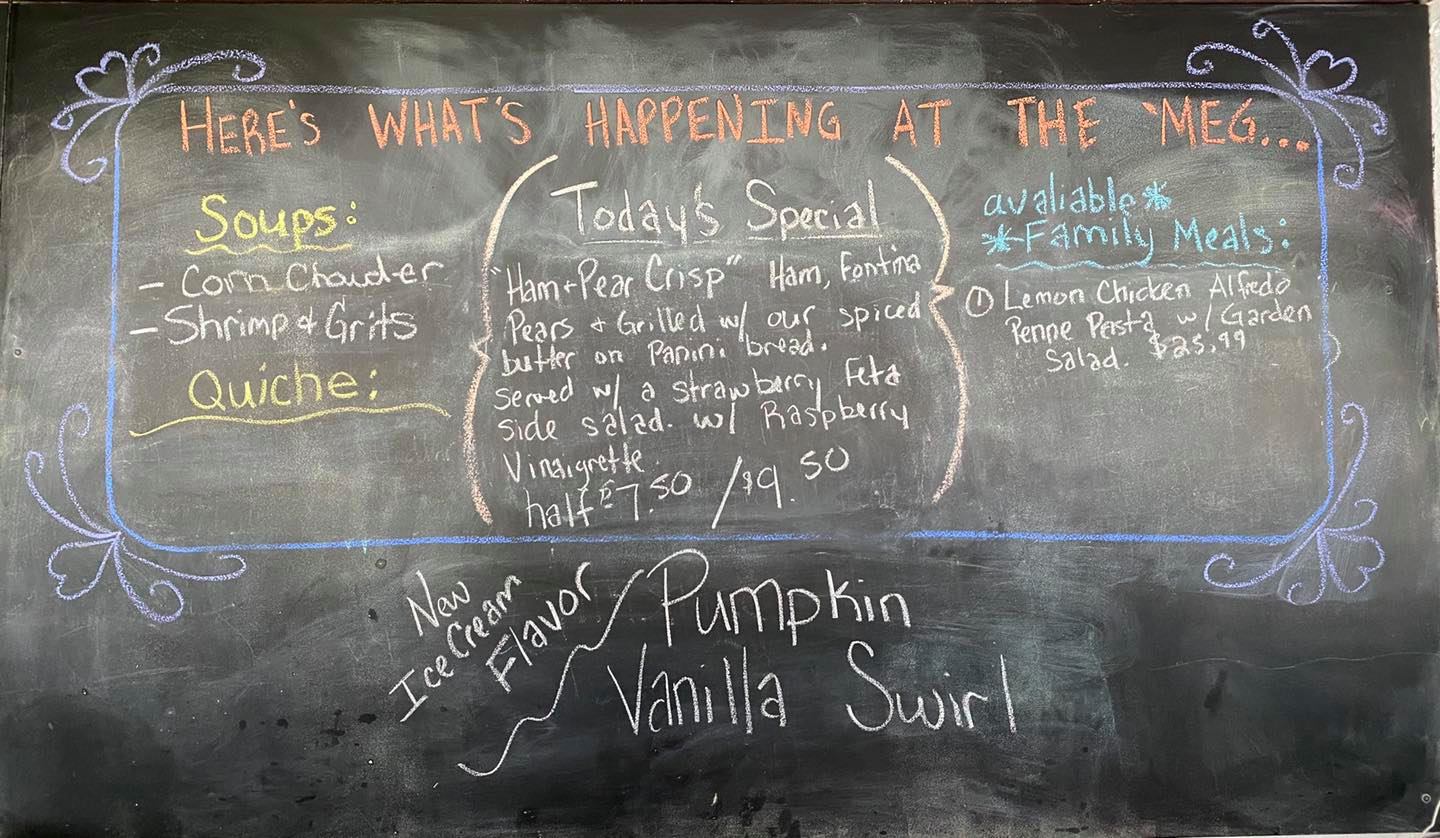 HERE'S WHAT'S HAPPENING AT THE 'MEG...
Soups:
- Corn Chowder
- Shrimp & Grits
Quiche:
Today's Special
"Ham + Pear Crisp" Ham, Fontina
Pears & Grilled w/ our spiced
butter on Panini bread.
served w/ a strawberry Feta
side salad. w/ Raspberry
Vinaigrette
half $7.50 / $9.50
avaliable *
* Family Meals:
① Lemon Chicken Alfredo
Penne Pasta w/ Garden
Salad. $25.99
New
Ice Cream
Flavor
Pumpkin
Vanilla Swirl